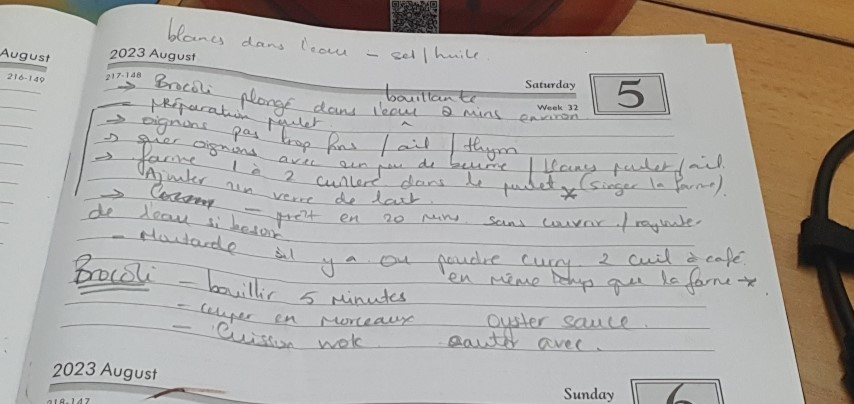 August
216-149
blancs dans l'eau - sel/huile.
2023 August
217-148
Saturday
Week 32
5
→ Brocoli plongé dans l'eau bouillante 2 mins environ
- Préparation poulet
→ oignons pas trop fins / ail / thym
→ suer oignons avec un peu de beurre / blancs poulet / ail.
→ farine 1 à 2 cuillere dans le poulet * (singer la farine).
Ajouter un verre de lait.
→ - prêt en 20 mins sans couvrir / rajouter
de l'eau si besoin
- Moutarde si y a ou poudre curry 2 cuil à café.
en même temps que la farine *
Brocoli - bouillir 5 minutes
- couper en morceaux oyster sauce.
- Cuisson wok sauter avec.
2023 August
218-147
Sunday
6